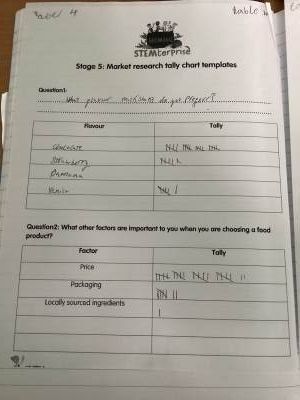 table 4
table
STEMterprise
Stage 5: Market research tally chart templates
Question1:
What flavour milkshake do you prefer?
Flavour Tally
chocolate
Strawberry
Banana
Vanila
Question2: What other factors are important to you when you are choosing a food
product?
Factor Tally
Price
Packaging
Locally sourced ingredients